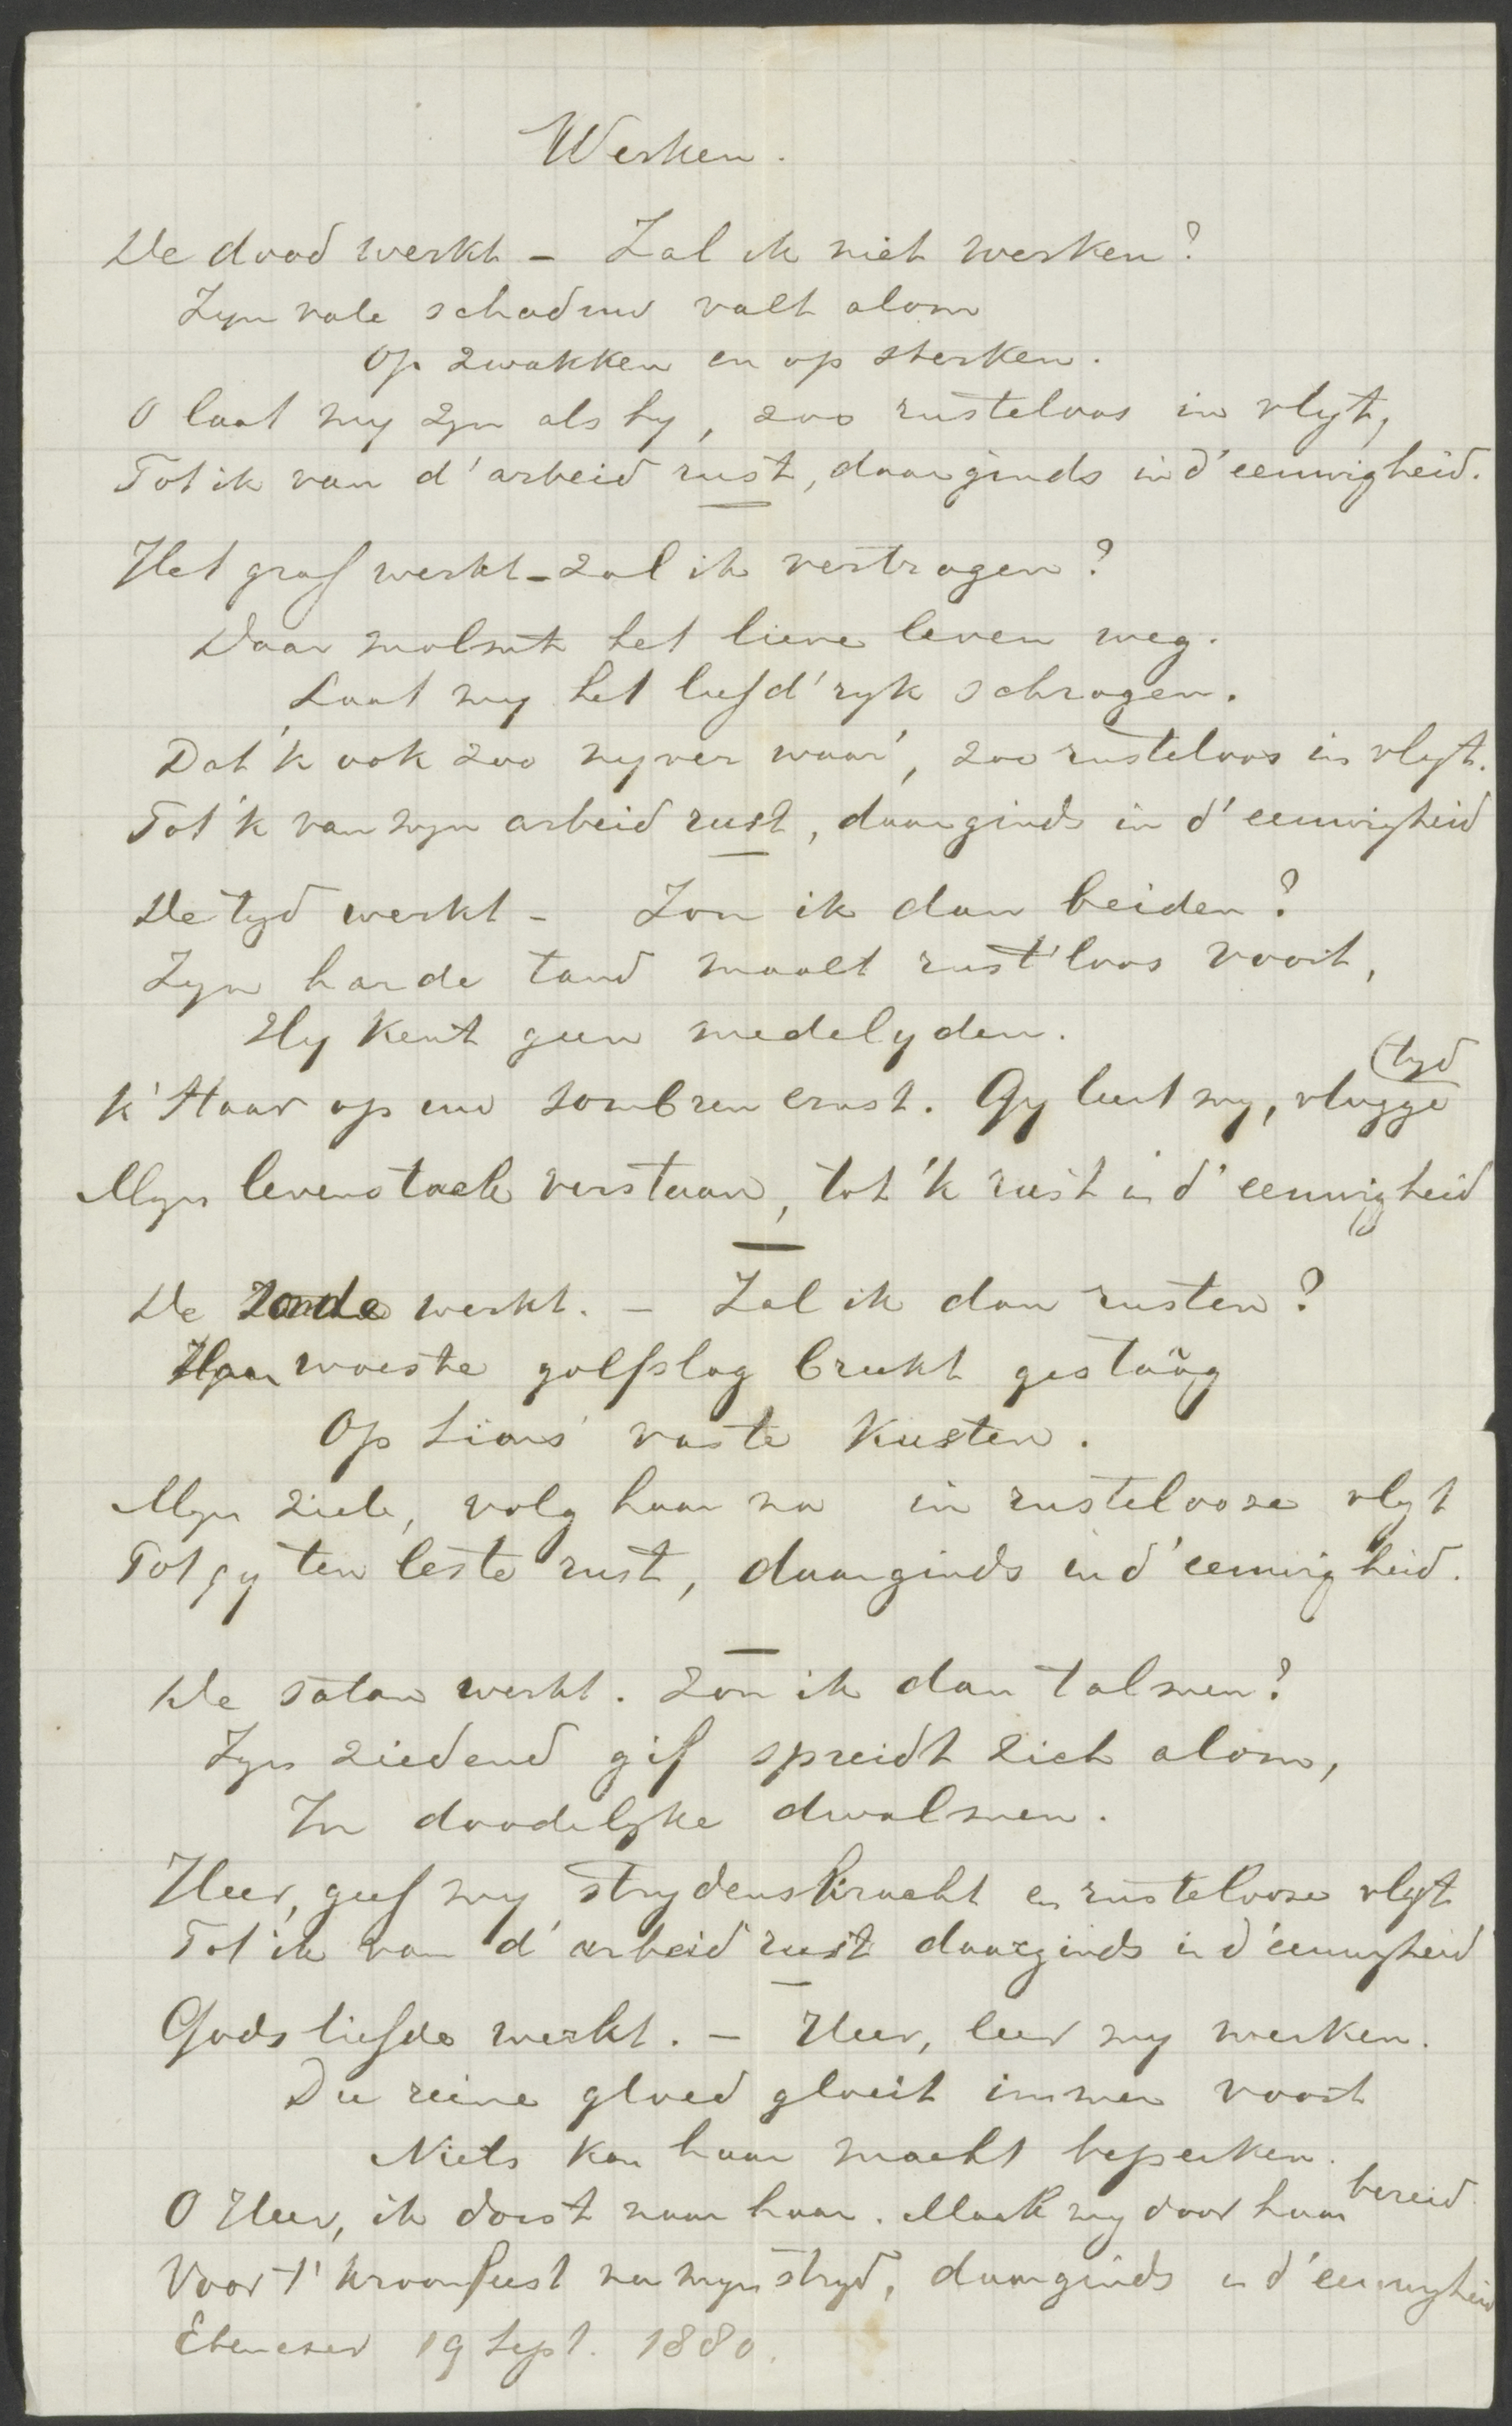 Werken.
De dood werkt – Zal ik niet werken?
Zyn vale schaduw valt alom
Op zwakken en op sterken.
O laat my zyn als hy, zoo rusteloos in vlyt,
Tot ik van d' arbeid rust, daarginds in d' eeuwigheid.
Het graf werkt – zal ik vertragen?
Daar molmt het lieve leven weg.
Laat my het liefd'ryk schragen.
Dat 'k ook zoo nyver waar', zoo rusteloos in vlyt.
Tot 'k van myn arbeid rust, daarginds in d' eeuwigheid
De tyd werkt – Zou ik dan beiden?
Zyn harde tand maalt rust'loos voort,
Hy kent geen medelyden.
k' Staar op uw sombren ernst. Gy leert my, vlugge tyd
Myn levenstaak verstaan, tot 'k rust in d' eeuwigheid
De zonde werkt. – Zal ik dan rusten?
Haar woeste golfslag breekt gestâag
Op Sions' vaste kusten.
Myn ziele, volg haar na in rustelooze vlyt
Tot gy ten leste rust, daarginds in d' eeuwigheid.
De satan werkt. Zou ik dan talmen?
Zyn ziedend gif spreidt zich alom,
In doodelyke dwalmen.
Heer, geef my strydenskracht en rustelooze vlyt
Tot ik van d' arbeid rust daarginds in d' eeuwigheid
Gods liefde werkt. – Heer, leer my werken.
Die reine gloed gloeit immer voort
Niets kan haar macht beperken.
O Heer, ik dorst naar haar. Maak my door haar bereid
Voor t' kroonfeest na myn stryd, daarginds in d' eeuwigheid
Ebenezer 19 Sept. 1880.